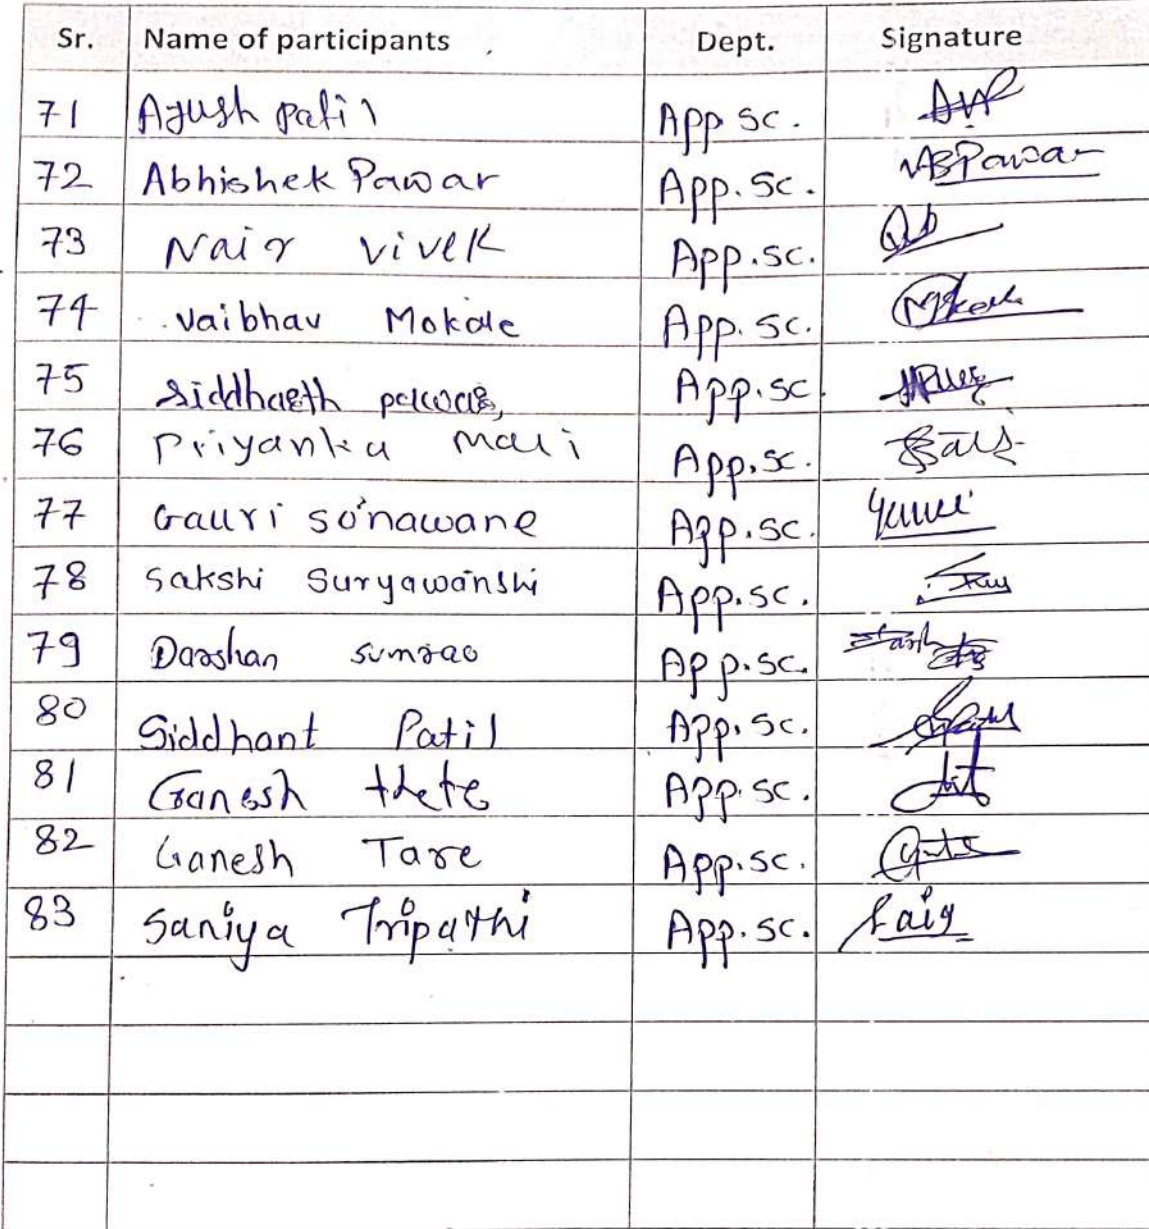 Sr. Name of participants Dept. Signature
71 Ayush Patil App sc.
72 Abhishek Pawar App. sc. ABPawar
73 Nair Vivek App.sc.
74 Vaibhav Mokale App. sc.
75 Siddharth pawar, App.sc.
76 Priyanka Mali App.sc.
77 Gauri sonawane App.sc.
78 Sakshi Suryawanshi App.sc.
79 Darshan sumrao App.sc.
80 Siddhant Patil App. sc.
81 Ganesh thete App. sc.
82 Ganesh Tare App.sc.
83 Saniya Tripathi App. sc.